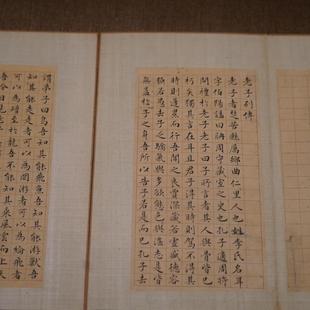 老子列傳
老子者楚苦縣厲鄉曲仁里人也姓李氏名耳
字伯陽諡曰聃周守藏室之史也孔子適周將
問禮於老子老子曰子所言者其人與骨皆已
朽矣獨其言在耳且君子得其時則駕不得其
時則蓬累而行吾聞之良賈深藏若虛盛德容
貌若愚去子之驕氣與多欲態色與淫志是皆
無益於子之身吾所以告子若是而已孔子去
謂弟子曰鳥吾知其能飛魚吾知其能游獸吾
知其能走走者可以為罔游者可以為綸飛者
可以為矰至於龍吾不能知其乘風雲而上天
吾今日見老子其猶龍